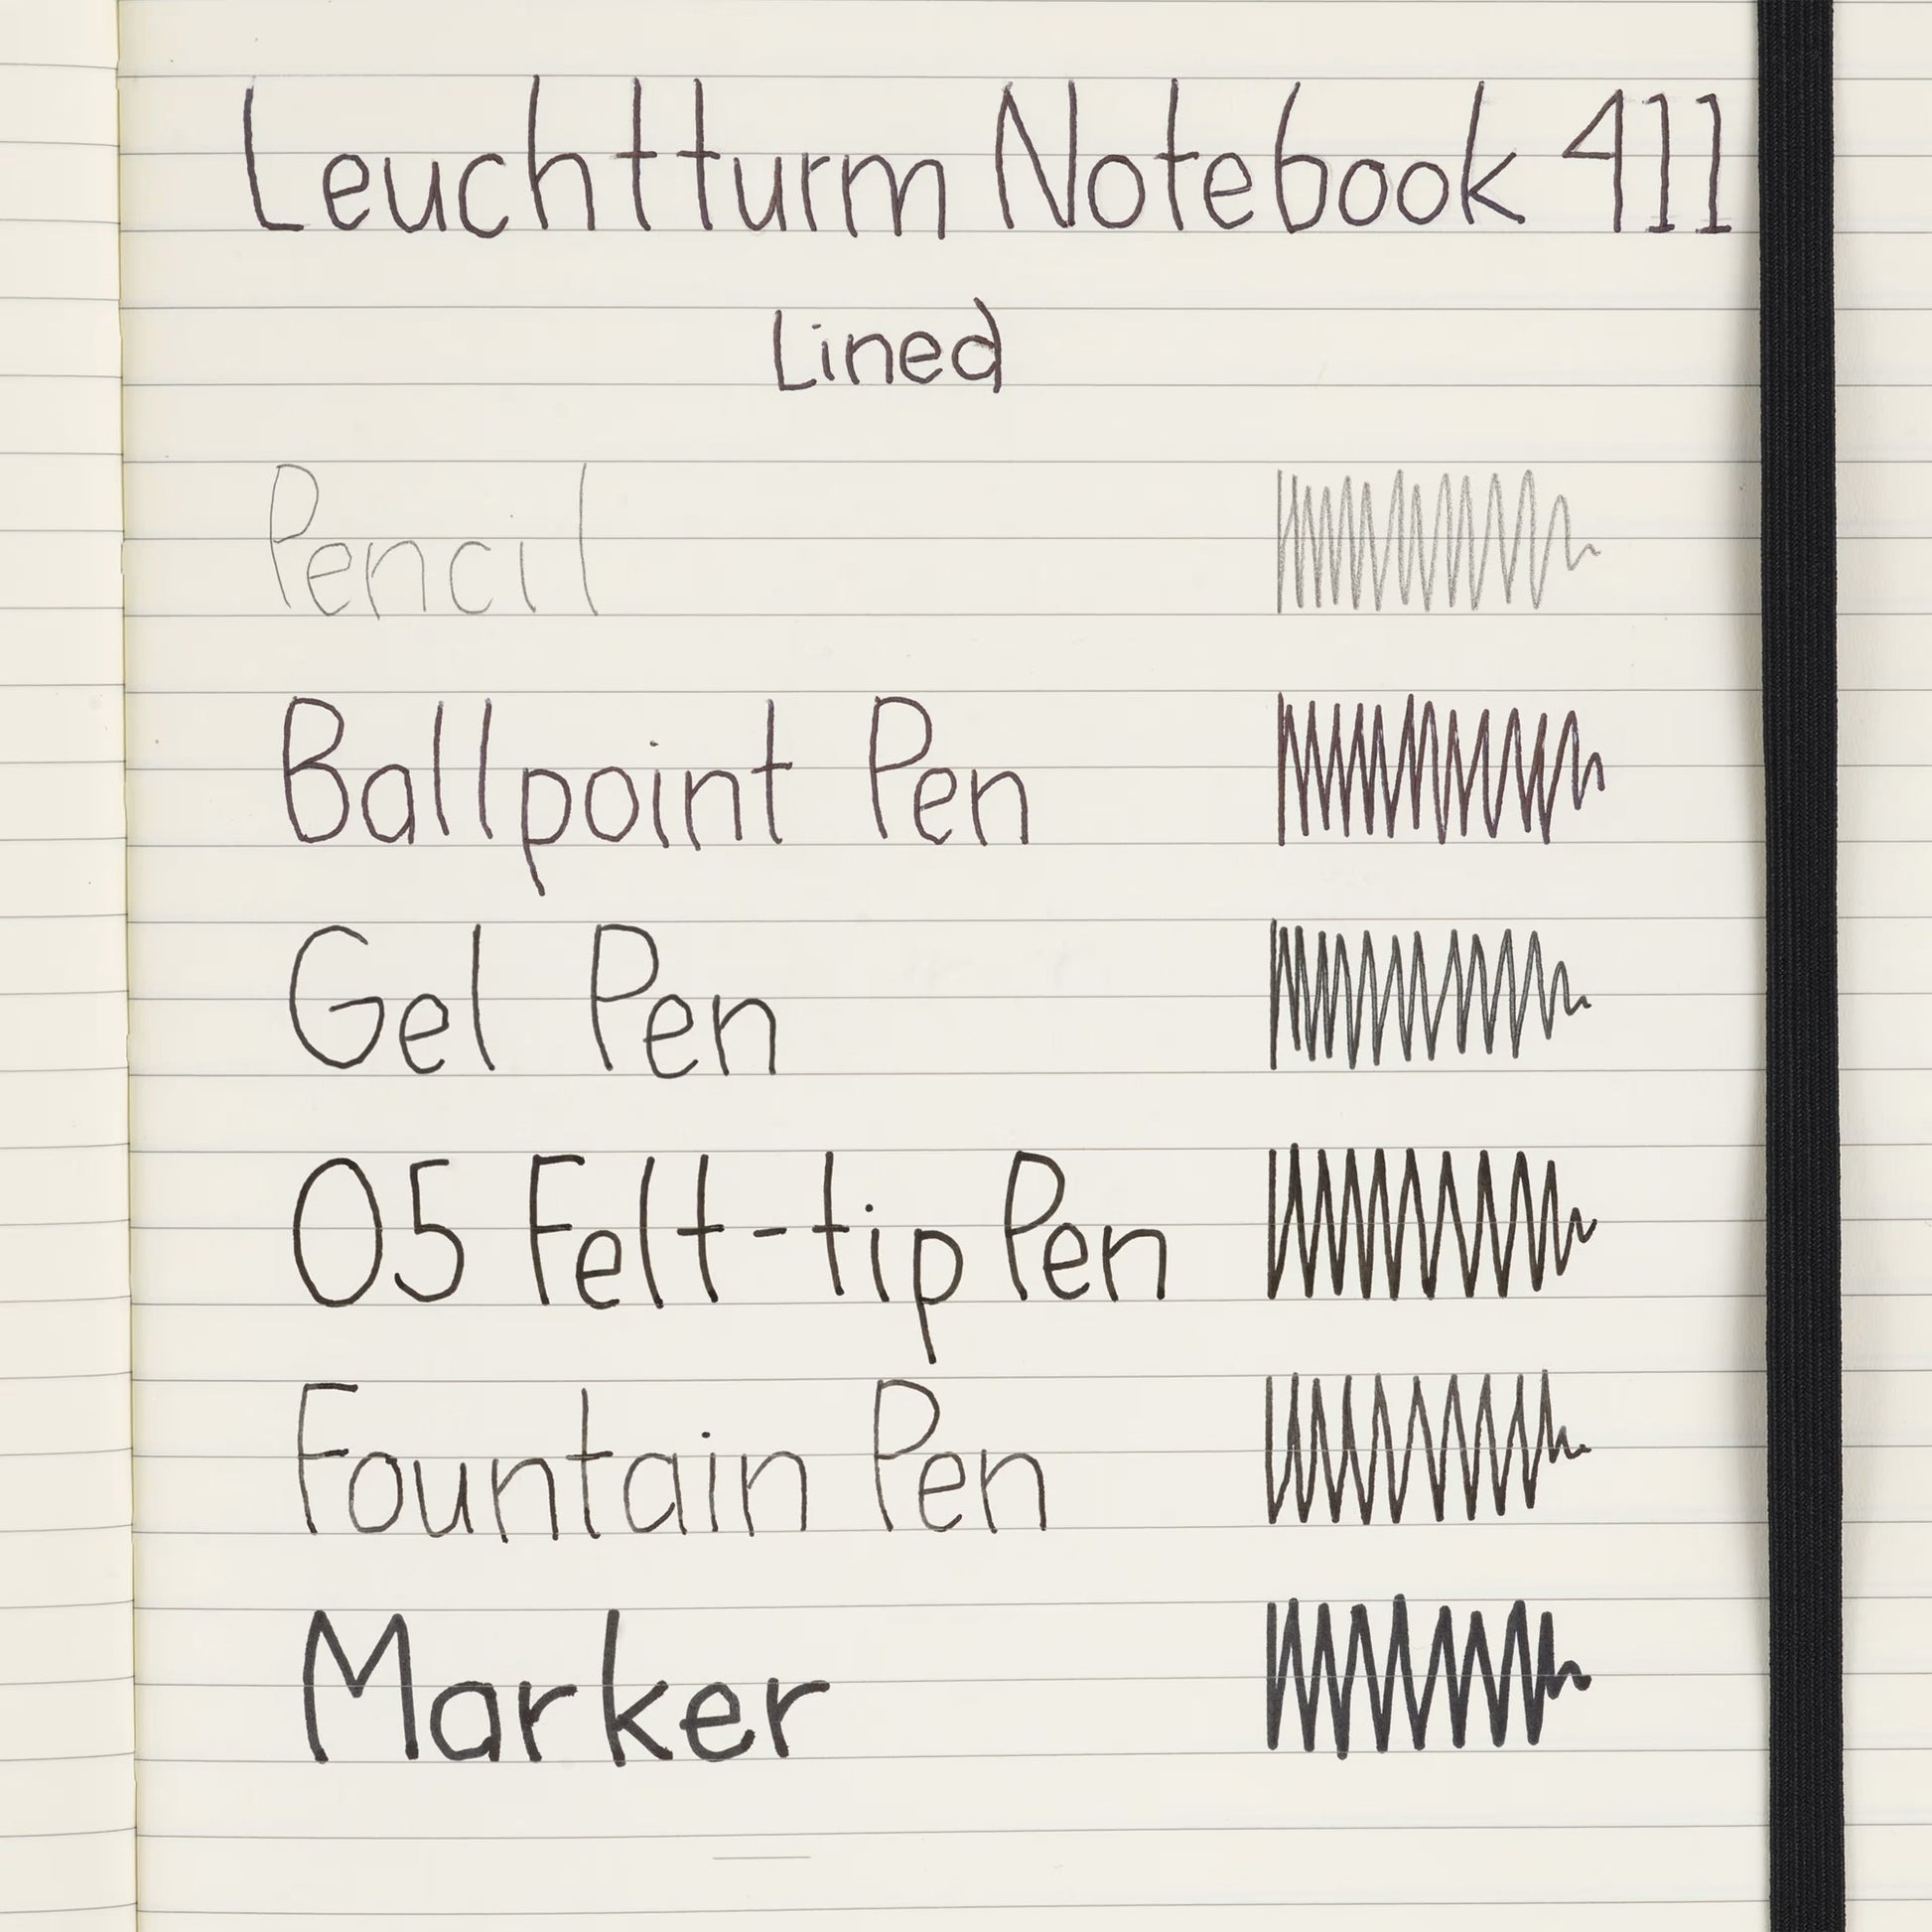 Leuchtturm Notebook 411
Lined
Pencil
Ballpoint Pen
Gel Pen
05 Felt-tip Pen
Fountain Pen
Marker